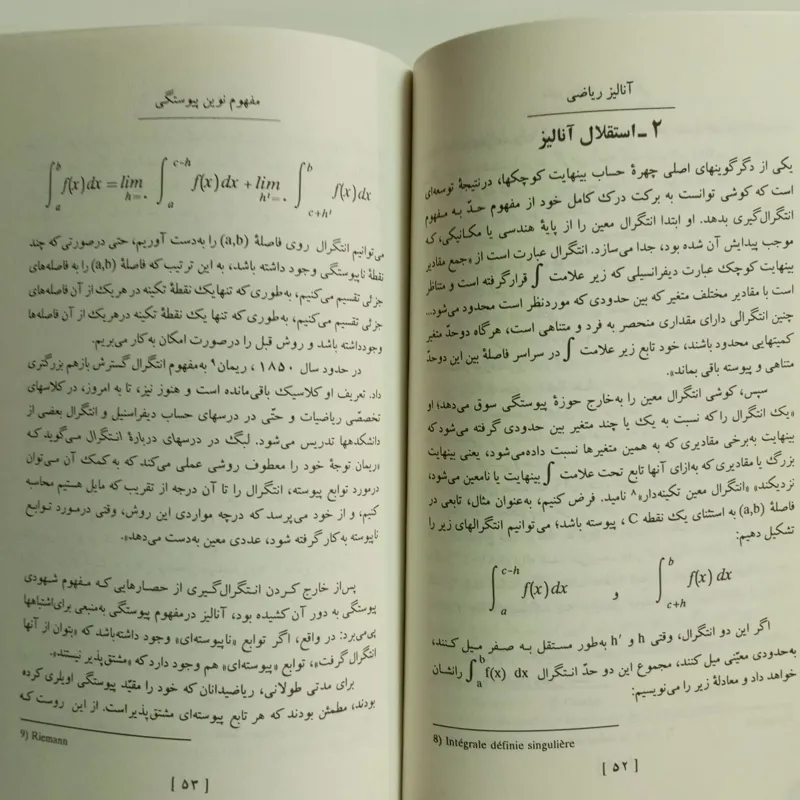 آنالیز ریاضی
۲ ـ استقلال آنالیز
یکی از دگرگونیهای اصلی چهرهٔ حساب بینهایت کوچکها، درنتیجهٔ توسعه‌ای
است که کوشی توانست به برکت درک کامل خود از مفهوم حدّ به مفهوم
انتگرال‌گیری بدهد. او ابتدا انتگرال معین را از پایهٔ هندسی یا مکانیکی، که
موجب پیدایش آن شده بود، جدا می‌سازد. انتگرال عبارت است از «جمع مقادیر
بینهایت کوچک عبارت دیفرانسیلی که زیر علامت ∫ قرارگرفته است و متناظر
است با مقادیر مختلف متغیر که بین حدودی که موردنظر است محدود می‌شود...
چنین انتگرالی دارای مقداری منحصر به فرد و متناهی است، هرگاه دوحدّ متغیر
کمیتهایی محدود باشند، خود تابع زیر علامت ∫ در سراسر فاصلهٔ بین این دوحدّ
متناهی و پیوسته باقی بماند».
سپس، کوشی انتگرال معین را به‌خارج حوزهٔ پیوستگی سوق می‌دهد؛ او
«یک انتگرال را که نسبت به یک یا چند متغیر بین حدودی گرفته می‌شود که
بینهایت به‌برخی مقادیری که به همین متغیرها نسبت داده‌می‌شود، یعنی بینهایت
بزرگ یا مقادیری که به‌ازای آنها تابع تحت علامت ∫ بینهایت یا نامعین می‌شود،
نزدیکند» «انتگرال معین تکینه‌دار»۸ نامید. فرض کنیم، به‌عنوان مثال، تابعی در
فاصلهٔ (a,b) به استثنای یک نقطه C ، پیوسته باشد؛ می‌توانیم انتگرالهای زیر را
تشکیل دهیم:
∫_a^{c-h} f(x) dx و ∫_{c+h}^b f(x) dx
اگر این دو انتگرال، وقتی h و h′ به‌طور مستقل به صفر میل کنند،
به‌حدودی معیّنی میل کنند، مجموع این دو حدّ انتگرال ∫_a^b f(x) dx رانشان
خواهد داد و معادلهٔ زیر را می‌نویسیم:
8) Intégrale définie singulière
[ ۵۲ ]
مفهوم نوین پیوستگی
∫_a^b f(x) dx = lim_{h=۰} ∫_a^{c-h} f(x) dx + lim_{h'=۰} ∫_{c+h'}^b f(x) dx
می‌توانیم انتگرال روی فاصلهٔ (a,b) را به‌دست آوریم، حتی درصورتی‌که چند
نقطهٔ ناپیوستگی وجود داشته باشد، به این ترتیب که فاصلهٔ (a,b) را به فاصله‌های
جزئی تقسیم می‌کنیم، به‌طوری که تنهایک نقطهٔ تکینه در هریک از آن فاصله‌های
جزئی تقسیم می‌کنیم، به‌طوری که تنها یک نقطهٔ تکینه درهریک از آن فاصله‌ها
وجودداشته باشد و روش قبل را درصورت امکان به‌کار می‌بریم.
در حدود سال ۱۸۵۰ ، ریمان۹ به‌مفهوم انتگرال گسترش بازهم بزرگتری
داد. تعریف او کلاسیک باقی‌مانده است و هنوز نیز، تا به امروز، درکلاسهای
تخصّصی ریاضیات و حتّی در درسهای حساب دیفراسنیل و انتگرال بعضی از
دانشکدهها تدریس می‌شود. لبگ در درسهای دربارهٔ انتگرال می‌گوید که
«ریمان توجهٔ خود را معطوف روشی عملی می‌کند که به‌کمک آن می‌توان
درمورد توابع پیوسته، انتگرال را تا آن درجه از تقریب که مایل هستیم محاسبه
کنیم، و از خود می‌پرسد که درچه مواردی این روش، وقتی درمورد توابع
ناپیوسته به‌کار گرفته شود، عددی معین به‌دست می‌دهد».
پس‌از خارج کردن انتگرال‌گیری از حصارهایی که مفهوم شهودی
پیوستگی به دور آن کشیده بود، آنالیز درمفهوم پیوستگی به‌منبعی برای‌اشتباهها
پی‌می‌برد: در واقع، اگر توابع «ناپیوسته‌ای» وجود داشته‌باشد که «بتوان از آنها
انتگرال گرفت»، توابع «پیوسته‌ای» هم وجود دارد که «مشتق‌پذیر نیستند».
برای مدتی طولانی، ریاضیدانان که خود را مقیّد پیوستگی اویلری کرده
بودند، مطمئن بودند که هر تابع پیوسته‌ای مشتق‌پذیر است. از این روست که
9) Riemann
[ ۵۳ ]